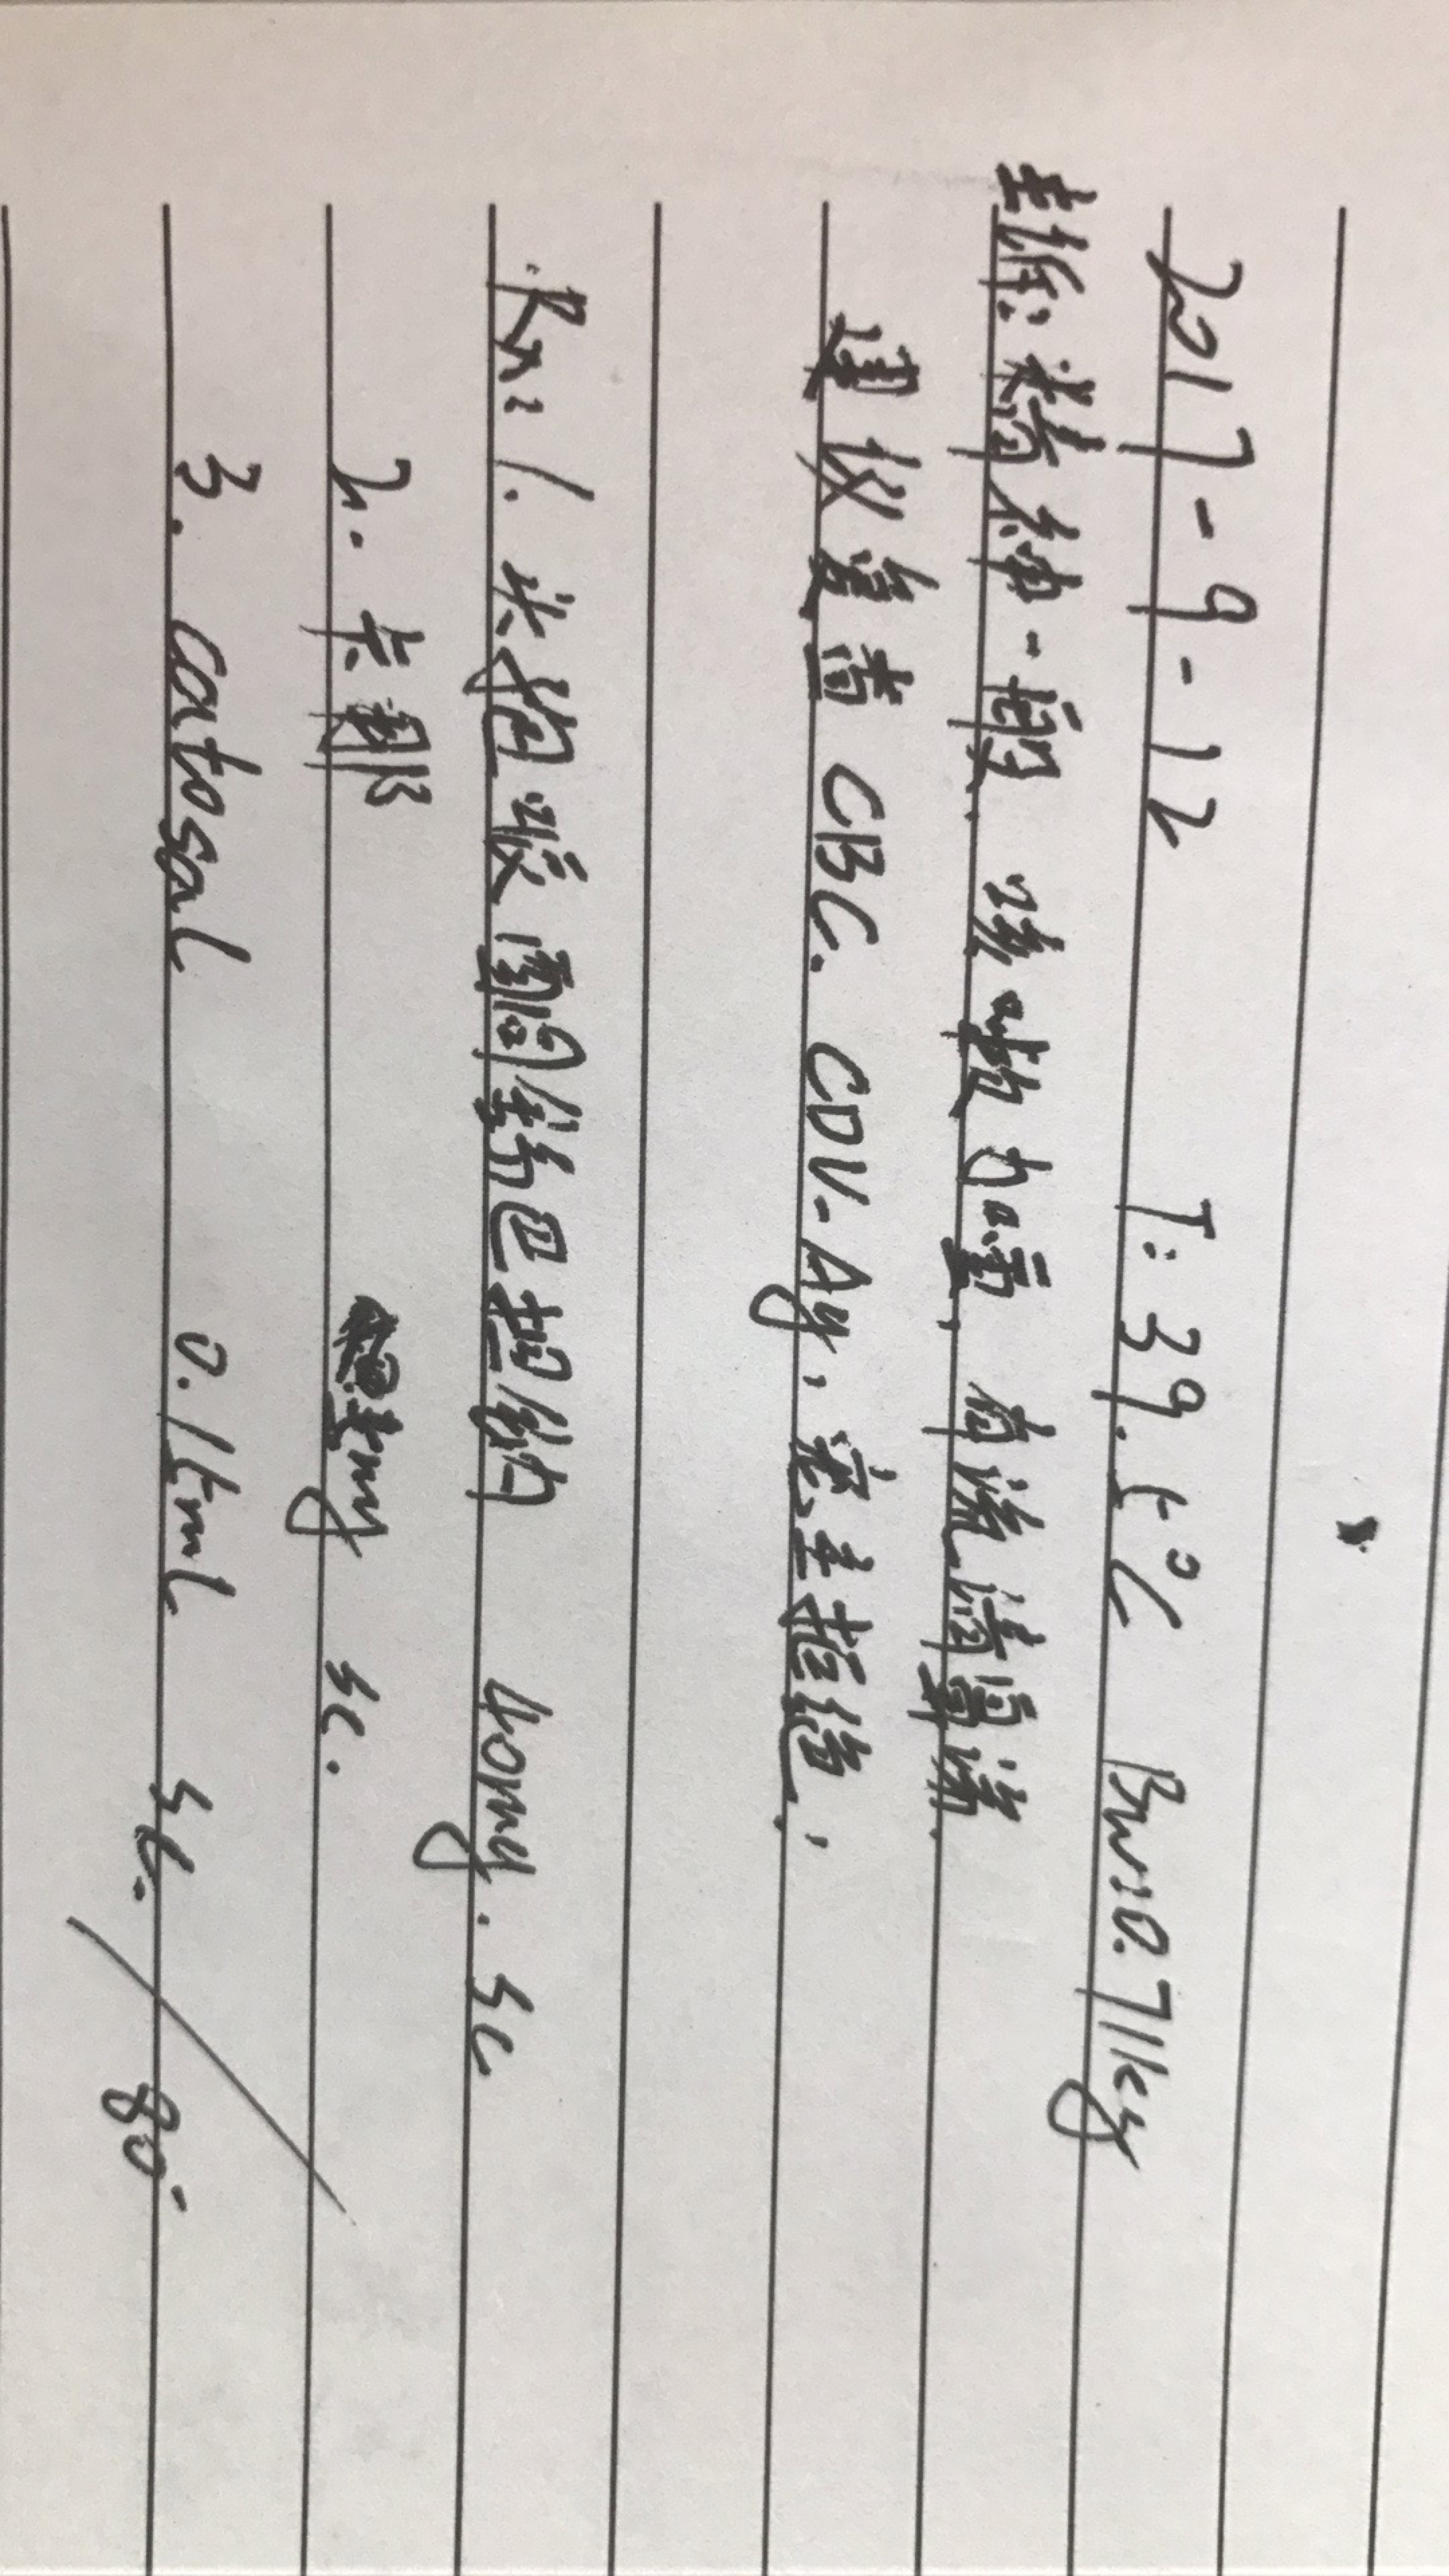 2017-9-12 T:39.5℃ BW:0.71kg
主诉:精神一般,咳嗽加重,有流清鼻涕.
建议复查 CBC. CDV-Ag,宠主拒绝,
Rx: 1. 头孢哌酮钠舒巴坦钠 40mg. sc
2. 卡那 mg sc.
3. catosal 0.15ml sc.
80-